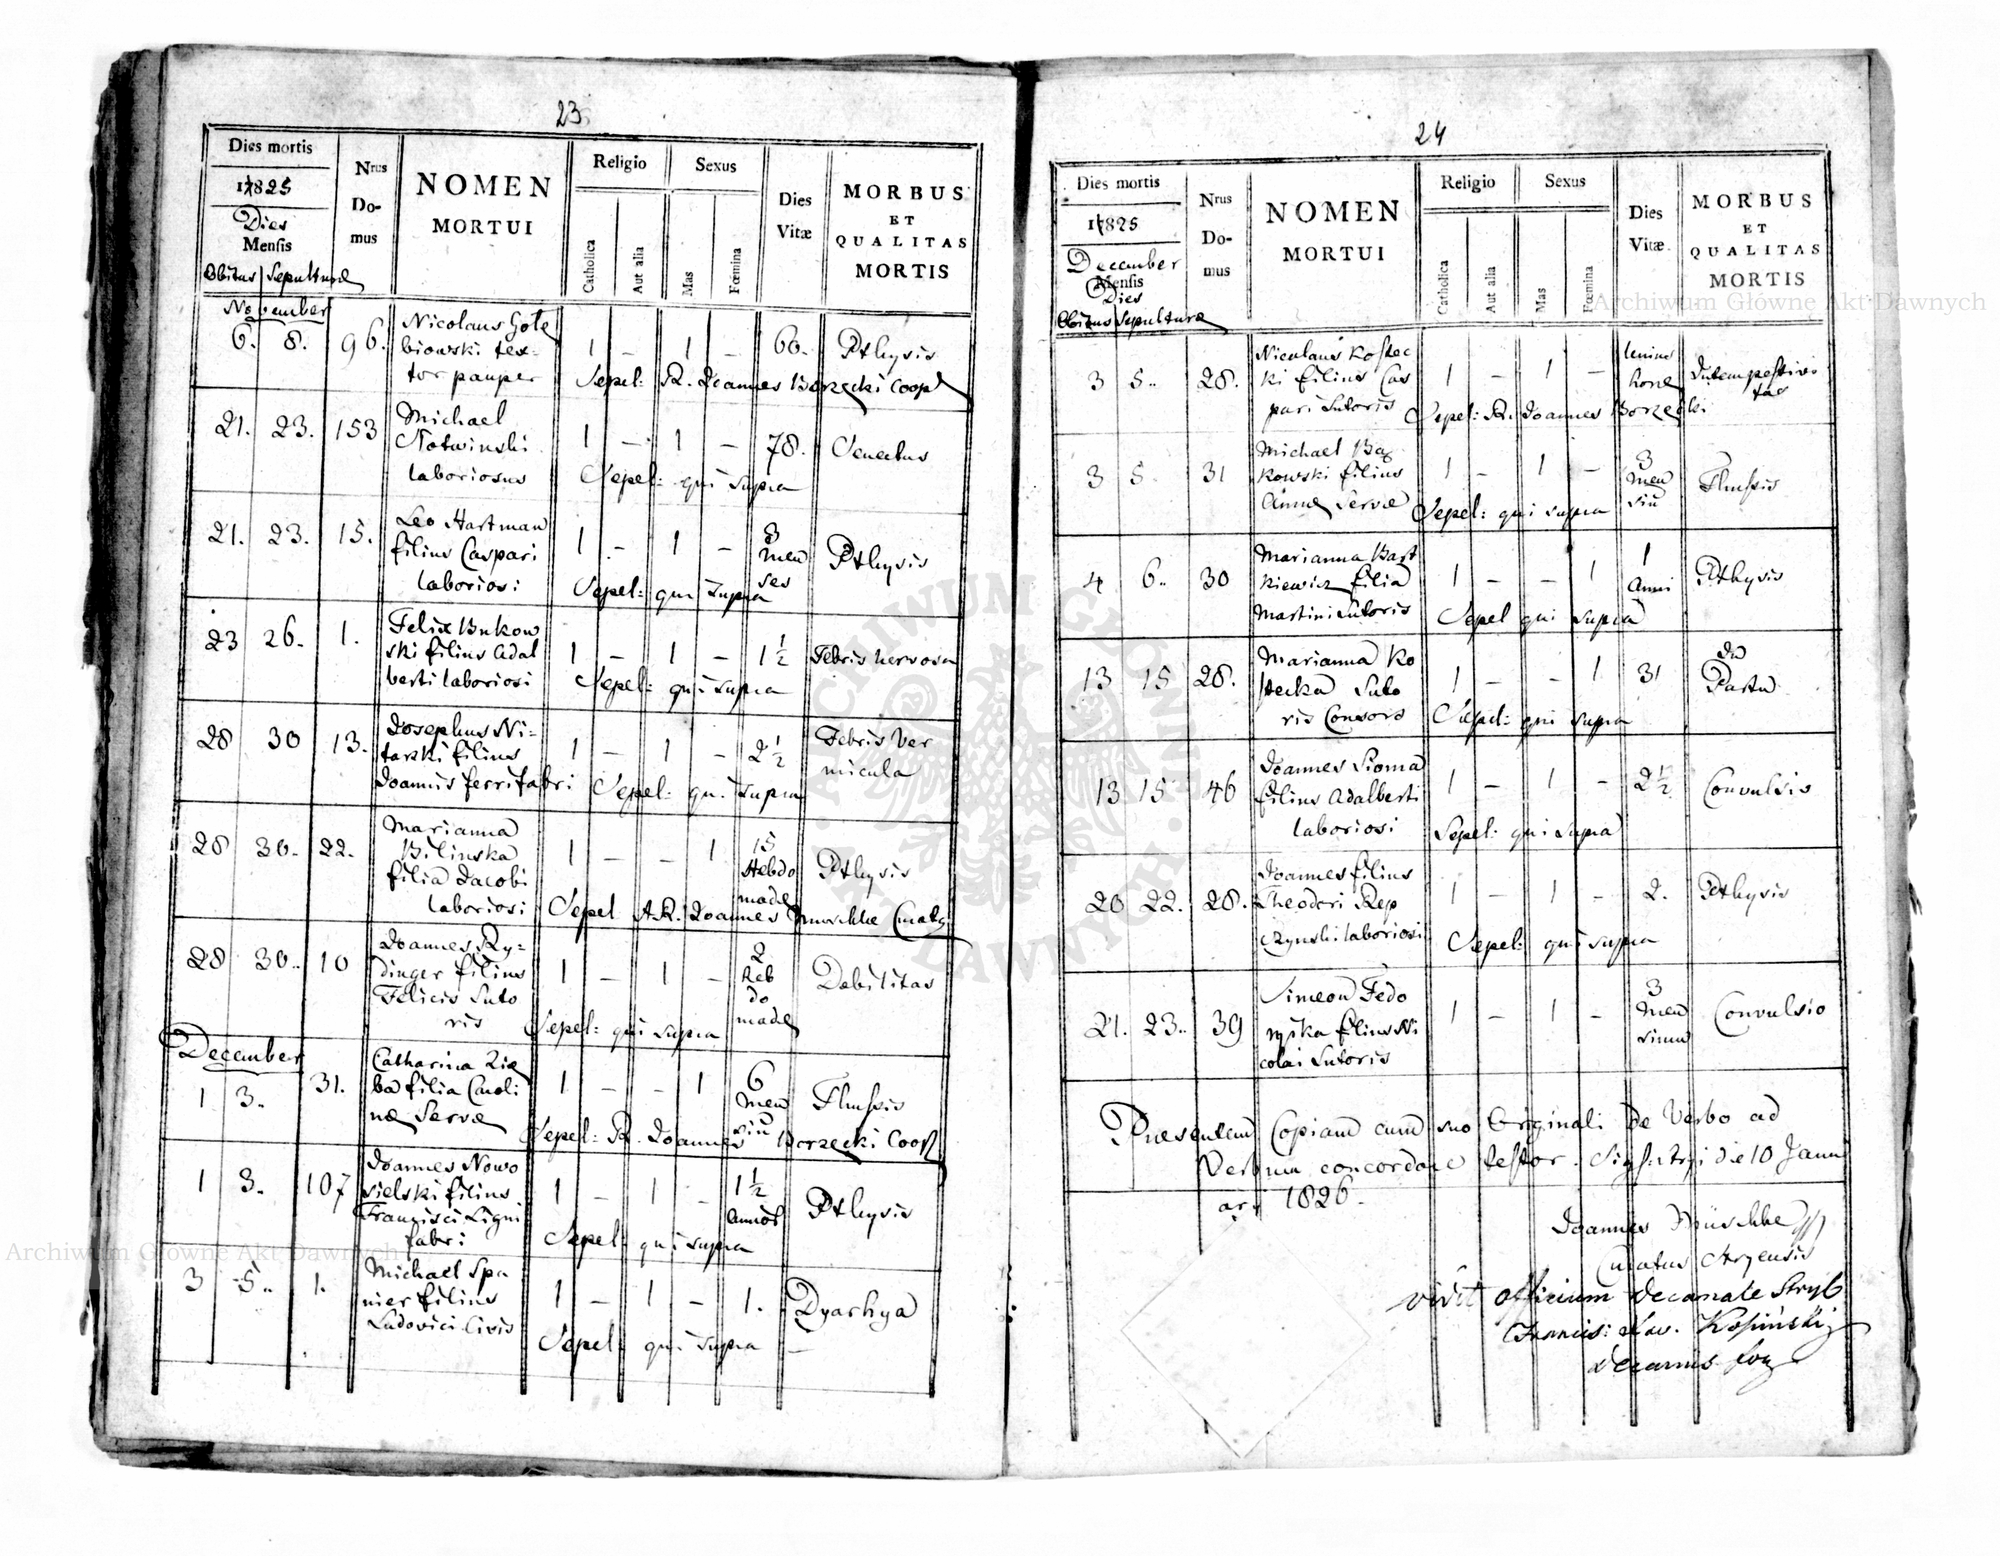 23
Dies mortis
1825
Dies
Mensis
Obitus Sepulturæ
Nrus
Do-
mus
NOMEN
MORTUI
Religio
Catholica
Aut alia
Sexus
Mas
Fœmina
Dies
Vitæ
MORBUS
ET
QUALITAS
MORTIS
November
6. 8. 96. Nicolaus Gole
biowski tex-
tor pauper
1 – 1 – 60. Pthysis
Sepel: R. Joannes Borzecki Coop
21. 23. 153 Michael
Notwinski
laboriosus
1 – 1 – 78. Senectus
Sepel: qui supra
21. 23. 15. Leo Hartman
filius Caspari
laboriosi
1 – 1 – 3
Men
ses
Pthysis
Sepel: qui supra
23 26. 1. Felix Bukow
ski filius Adal
berti laboriosi
1 – 1 – 1 1/2 Febris nervosa
Sepel: qui supra
28 30 13. Josephus Ni-
tarski filius
Joannis ferrifabri
1 – 1 – 2 1/2 Febris Ver
micula
Sepel: qui supra
28 30. 22. Marianna
Bilinska
filia Jacobi
laboriosi
1 – – 1 15
Hebdo
madæ
Pthysis
Sepel A.R. Joannes
28 30.. 10 Joannes Ry-
dinger filius
Felicis Suto
ris
1 – 1 – 2
heb
do
madæ
Debilitas
Sepel: qui supra
December
1 3. 31. Catharina Zie
ba filia Caroli
næ Servæ
1 – – 1 6
Men
siu
Flussis
Sepel: R. Joannes Borzecki Coop
1 3. 107 Joannes Nowo
sielski filius
Francisci Ligni
fabri
1 – 1 – 1 1/2
annor
Pthysis
Sepel: qui supra
3 5.. 1. Michael Spa
nier filius
Ludovici Civis
1 – 1 – 1. Dyarhya
Sepel: qui supra –
24
Dies mortis
1825
December
Mensis
Dies
Obitus Sepulturæ
Nrus
Do-
mus
NOMEN
MORTUI
Religio
Catholica
Aut alia
Sexus
Mas
Fœmina
Dies
Vitæ.
MORBUS
ET
QUALITAS
MORTIS
3 5.. 28. Nicolaus Kostec
ki filius Cas
pari Sutoris
1 – 1 – unius
horæ
Intempestivi
tas
Sepel: R. Joannes Borzecki
3 5. 31 Michael Bac
kowski filius
Annæ Servæ
1 – 1 – 3
Men
siu
Flussis
Sepel: qui supra
4 6.. 30 Marianna Bart
kiewicz filia
Martini Sutoris
1 – – 1 1
Anni
Pthysis
Sepel qui supra
13 15 28. Marianna Ko
stecka Suto
ris Consors
1 – – 1 31 In
Partu
Sepel: qui supra
13 15 46 Joannes Sroma
filius Adalberti
laboriosi
1 – 1 – 2 1/2 Convulsis
Sepel: qui supra
20 22. 28. Joannes filius
Theodori Rep
czynski laboriosi
1 – 1 – 2. Pthysis
Sepel: qui supra
21. 23.. 39 Simeon Fedo
filius Ni
colai Sutoris
1 – 1 – 3
Men
sium
Convulsio
Præsentem Copiam cum suo Originali de Verbo ad
Verbum concordare testor. die 10 Janu
ar 1826.
Joannes
Curatus Stryensis
vidit officium decanale Stryb
Francis: Xav. Kosinski
decanus
Archiwum Główne Akt Dawnych
Archiwum Główne Akt Dawnych
ARCHIWUM GŁÓWNE
AKT DAWNYCH